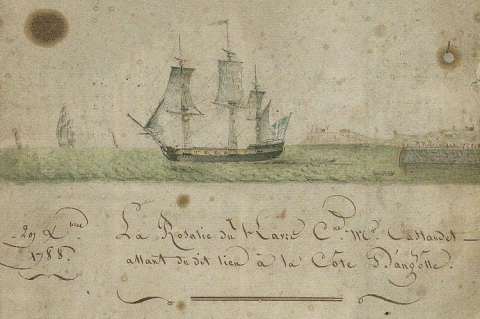 20 Xbre
1788
La Rosalie du Cne. Mr. Castandet
allant du dit lieu à la Côte D'angolle.